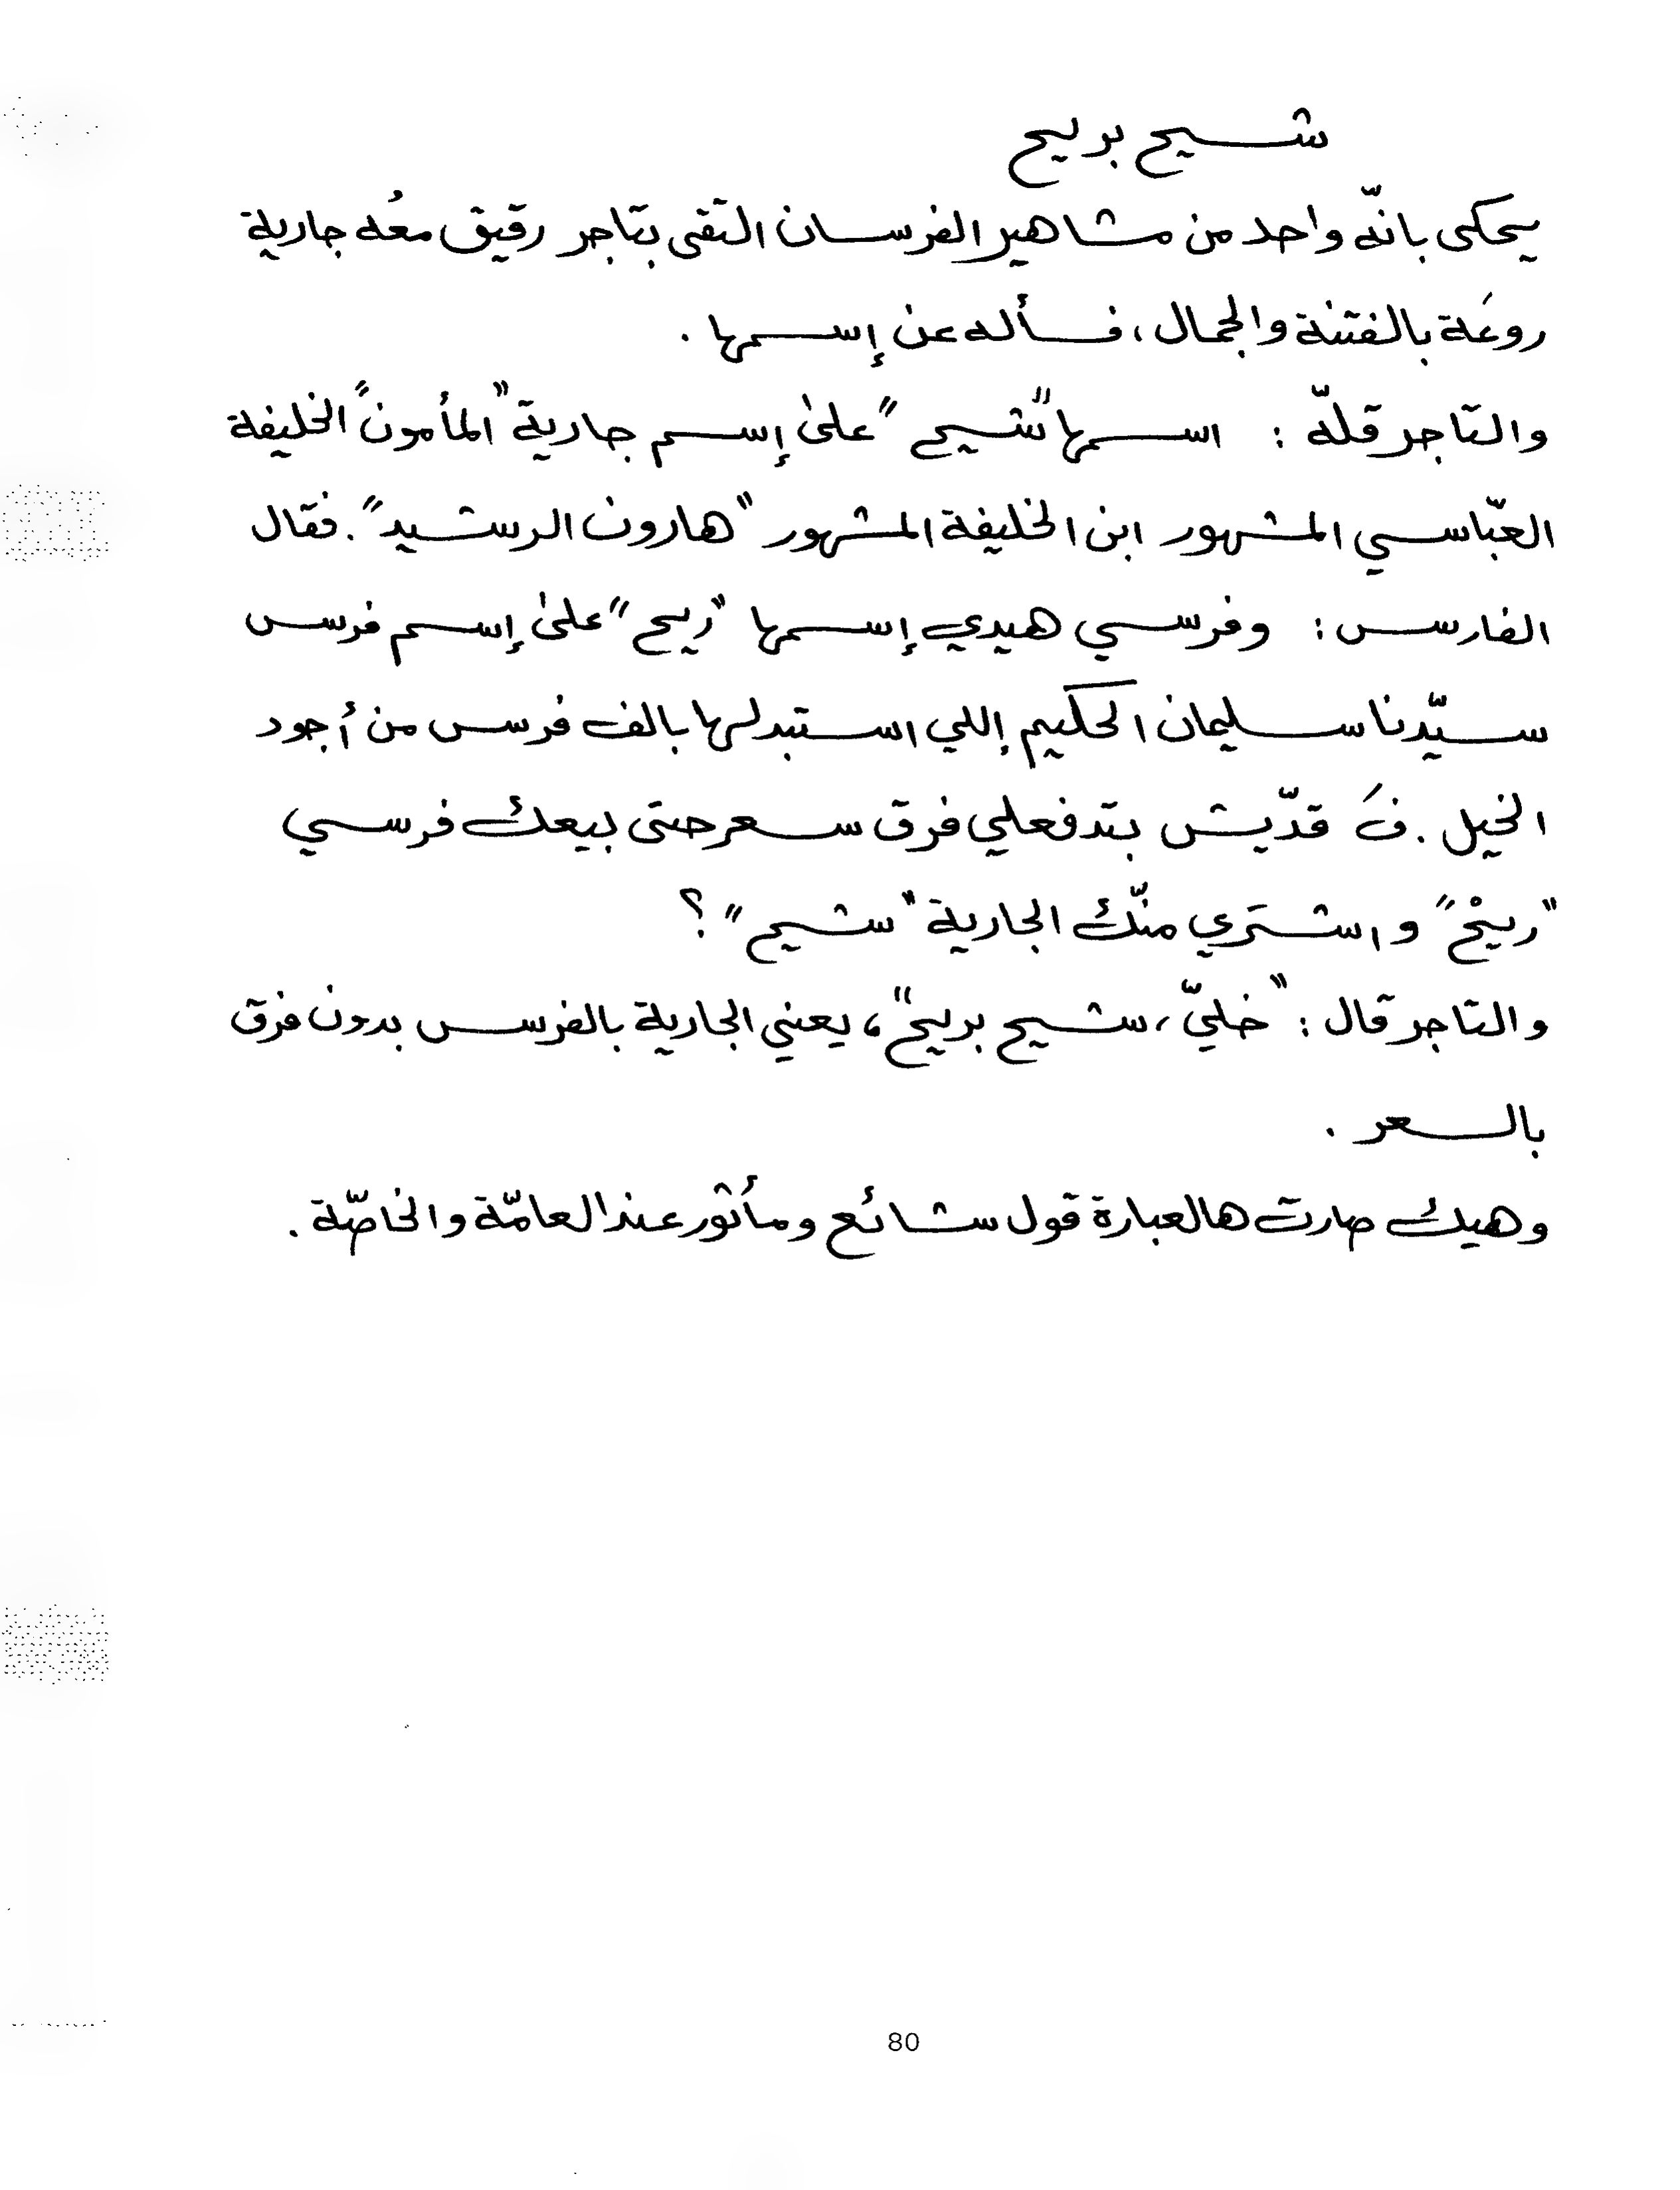 شيح بريح
يحكى بانّه واحد من مشاهير الفرسان التقى بتاجر رقيق معُه جارية
روعَة بالفتنة والجمال، فسأله عن إسمها .
والتاجر قلّه : اسمها "شيح" على إسم جارية "المأمون" الخليفة
العبّاسي المشهور ابن الخليفة المشهور "هارون الرشيد". فقال
الفارس: وفرسي هيدي إسمها "ريح" على إسم فرس
سيّدنا سليمان الحكيم إللي استبدلها بالف فرس من أجود
الخيل . فَ قدّيش بتدفعلي فرق سعر حتى بيعك فرسي
"ريحْ" واشتري منّك الجارية "شيح"؟
والتاجر قال : "خليّ، شيح بريح"، يعني الجارية بالفرس بدون فرق
بالسعر .
وهيك صارت هالعبارة قول شائع ومأثور عند العامّة والخاصّة .
80